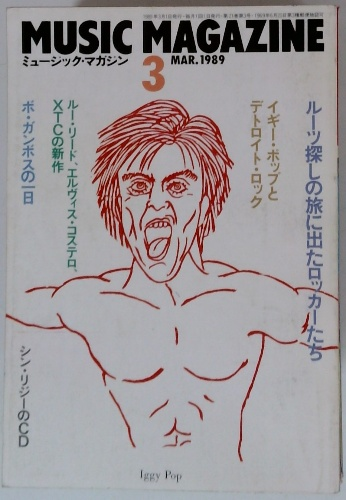 MUSIC MAGAZINE
ミュージック・マガジン
3
MAR.1989
ルーツ探しの旅に出たロッカーたち
イギー・ポップと
デトロイト・ロック
ルー・リード、エルヴィス・コステロ、
XTCの新作
ボ・ガンボスの一日
シン・リジーのCD
Iggy Pop